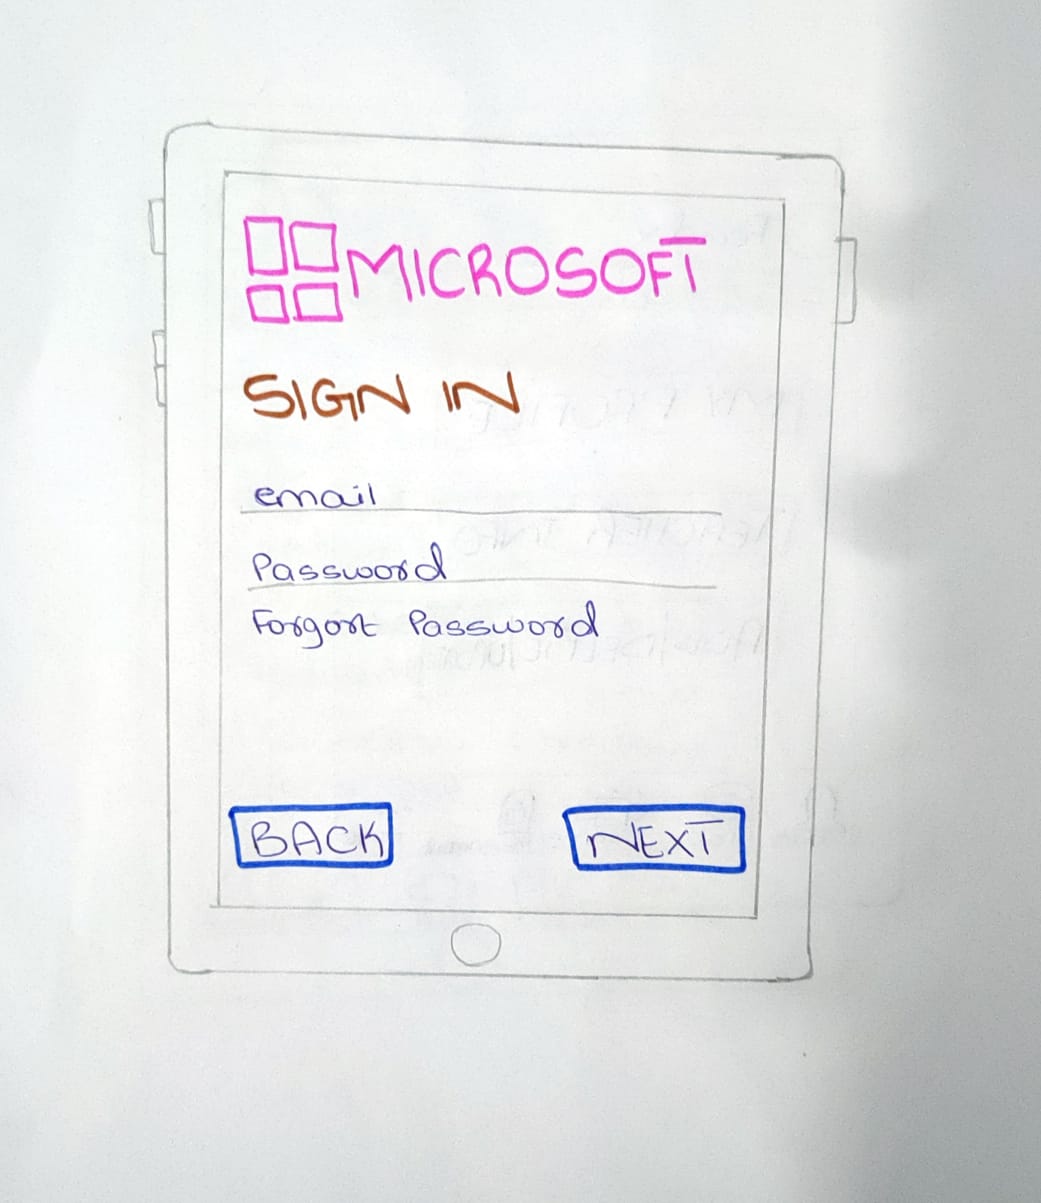 MICROSOFT
SIGN IN
email
Password
Forgort Password
BACK
NEXT